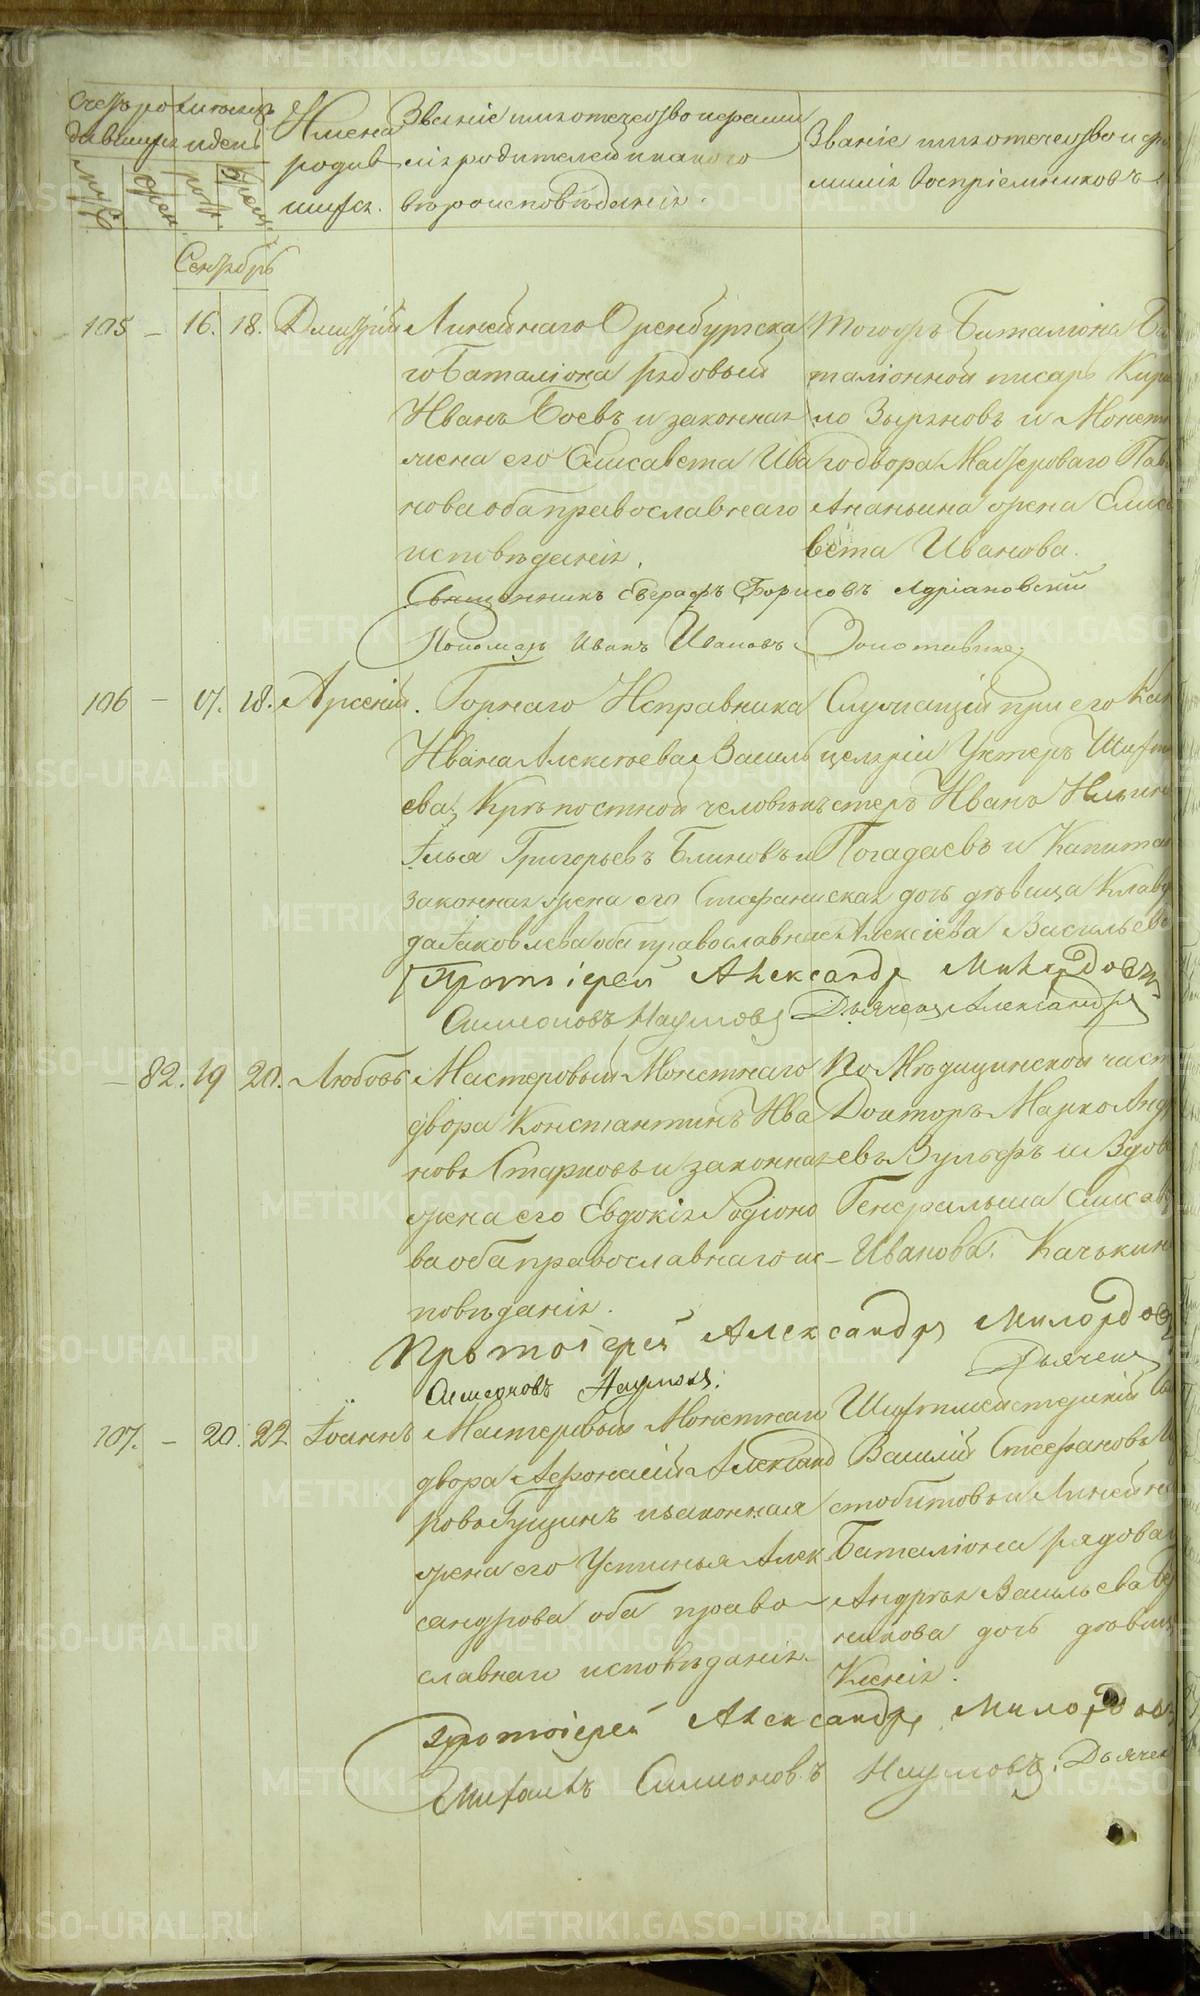 Счетъ родившихся
и день
Имена родив
шихся.
Званіе имя отечество и фами
лія родителей и какого
вѣроисповѣданія.
Званіе имя отечество и фа
милія воспріемниковъ
муж. жен. рож. крещ.
Сентябрь
105 – 16. 18. Дмитрій
Линейнаго Оренбургска
го Баталіона рядовый
Иванъ Боевъ и законная
жена его Елисавета Ива
нова оба православнаго
исповѣданія.
Тогожъ Баталіона Ба
таліонной писарь Кири
ло Зыряновъ и Монетна
го двора Мастероваго
Ананьина жена Елиса
вета Иванова.
Священникъ Евграфъ Борисовъ Адріановскій
Пономарь Иванъ Ивановъ
106 – 17. 18. Арсеній.
Горнаго Исправника
Ивана Алексѣева Василь
ева, Крѣпостной человѣкъ
Илья Григорьевъ Блиновъ и
законная жена его Стефани
да Іаковлева оба православнаго
Служащій при его Кан
целяріи Унтеръ Шихтмей
стеръ Иванъ Ильинъ
Погадаевъ и Капитан
ская дочь дѣвица Клавдія
Алексіева Васильева
Протоіерей Александръ Милордовъ
Симеоновъ Наумовъ Дьячекъ Александръ
– 82. 19 20. Любовь
Мастеровый Монетнаго
двора Константинъ Ива
новъ Старковъ и законная
жена его Евдокія Родіоно
ва оба православнаго ис–
повѣданія.
По Медицинской части
Докторъ Марко Андре
евъ Вульфъ и Вдова
Генеральша Елисавета
Иванова Качькина
Протоіерей Александръ Милордовъ
Дьячекъ
Симеоновъ Наумовъ.
107. – 20. 22 Іоаннъ
Мастеровый Монетнаго
двора Афонасій Александ
ровъ Гущинъ и законная
жена его Устинья Алек
сандрова оба право–
славнаго исповѣданія.
Шихтмейстерскій
Василій Стефановъ
и Линейнаго
Баталіона рядоваго
Андрея Васильева
никова дочь дѣвица
Ксенія.
Протоіерей Александръ Милордовъ
Михаилъ Симеоновъ Наумовъ. Дьячекъ